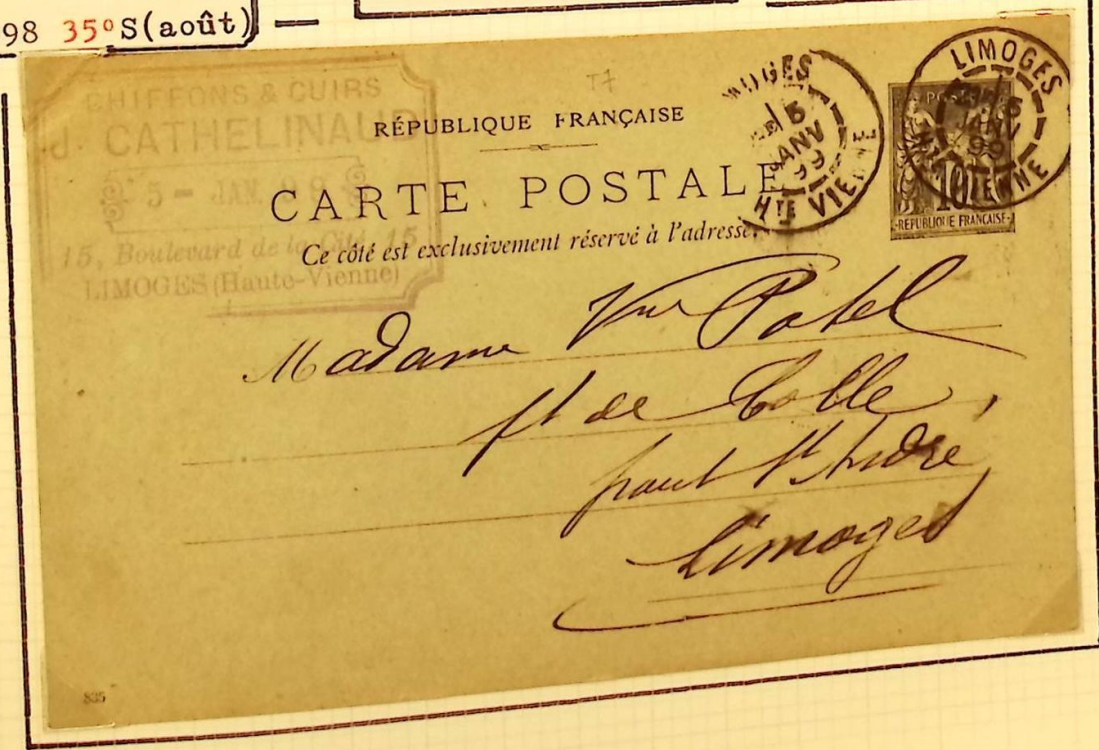 98 35° S(août)
CHIFFONS & CUIRS
J. CATHELINAUD
5 - JAN. 99
15, Boulevard de la Cité, 15
LIMOGES (Haute-Vienne)
RÉPUBLIQUE FRANÇAISE
CARTE POSTALE
Ce côté est exclusivement réservé à l'adresse.
LIMOGES
5
JANV
99
HTE VIENNE
LIMOGES
5
JANV
99
HTE VIENNE
POSTES
10
REPUBLIQUE FRANÇAISE
Madame Vve
de
St André
Limoges
835